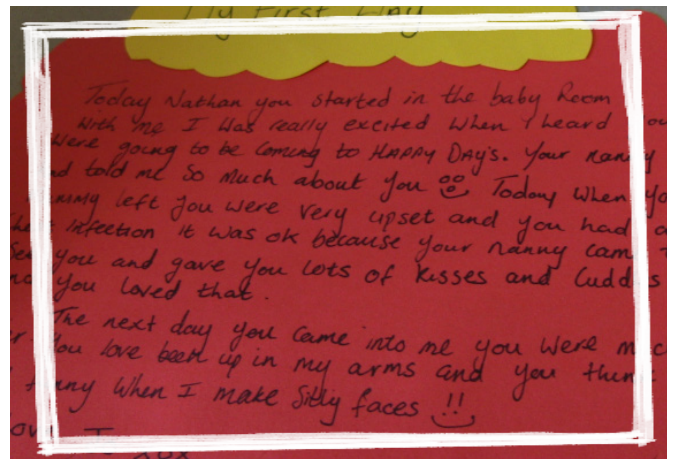 My First Day
Today Nathan you started in the baby Room
with me I was really excited when I heard
were going to be coming to HAPPY DAY'S. Your nanny
told me so much about you Today when
left you were very upset and you had
infection it was ok because your nanny cam
you and gave you lots of kisses and Cuddles
you loved that.
The next day you came into me you were
you love been up in my arms and you
when I make silly faces !!
xox